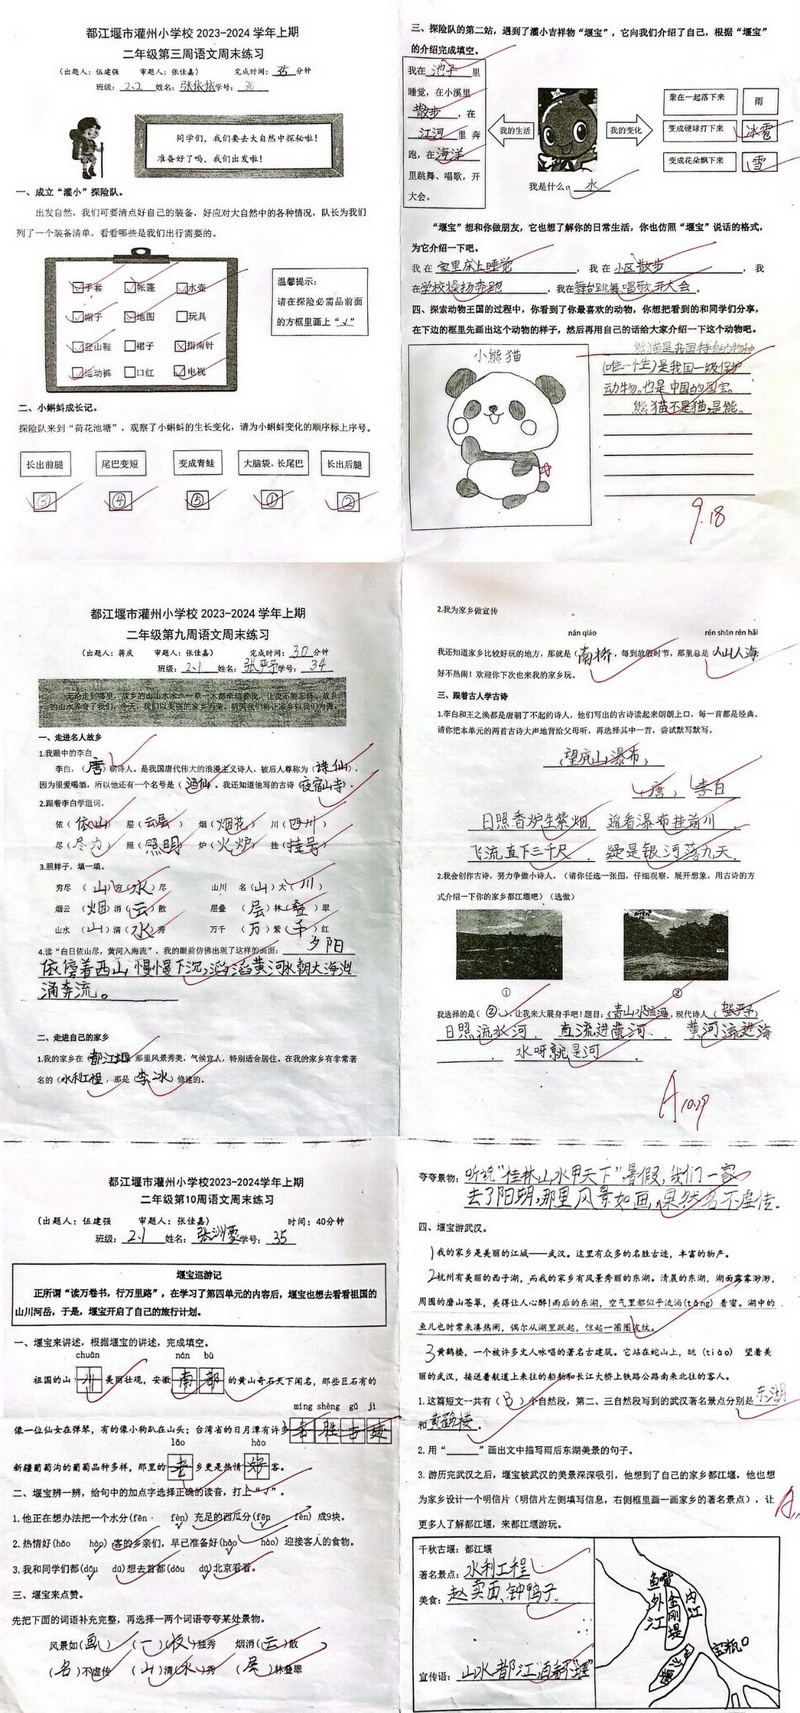 都江堰市灌州小学校 2023-2024 学年上期
二年级第三周语文周末练习
（出题人：伍建强 审题人：张佳嘉） 完成时间：35 分钟
班级：2.2 姓名： 学号：
同学们，我们要去大自然中探秘啦！
准备好了吗、我们出发啦！
一、成立“灌小”探险队。
出发自然，我们可要清点好自己的装备，好应对大自然中的各种情况，队长为我们
列了一个装备清单，看看哪些是我们出行需要的。
手套 帐篷 水壶
帽子 地图 玩具
登山鞋 裙子 指南针
运动裤 口红 电视
温馨提示：
请在探险必需品前面
的方框里画上“√”
二、小蝌蚪成长记。
探险队来到“荷花池塘”，观察了小蝌蚪的生长变化，请为小蝌蚪变化的顺序标上序号。
长出前腿 尾巴变短 变成青蛙 大脑袋，长尾巴 长出后腿
③ ④ ⑤ ① ②
三、探险队的第二站，遇到了灌小吉祥物“堰宝”，它向我们介绍了自己，根据“堰宝”
的介绍完成填空。
我在 池子 里
睡觉，在小溪里
散步，在
江河 里奔
跑，在 海洋
里跳舞、唱歌，开
大会。
我的生活
我的变化
聚在一起落下来 雨
变成硬球打下来 冰雹
变成花朵飘下来 雪
我是什么：水
“堰宝”想和你做朋友，它也想了解你的日常生活，你也仿照“堰宝”说话的格式，
为它介绍一下吧。
我在 家里床上睡觉，我在 小区散步，我
在 学校操场奔跑，我在 舞台跳舞唱歌开大会。
四、探索动物王国的过程中，你看到了你最喜欢的动物，你想把看到的和同学们分享，
在下边的框里先画出这个动物的样子，然后再用自己的话给大家介绍一下这个动物吧。
小熊猫
熊猫是我国特有的物种
(唯一个生)是我国一级保护
动物。也是中国的国宝。
熊猫不是猫，是熊。
9.18
都江堰市灌州小学校 2023-2024 学年上期
二年级第九周语文周末练习
（出题人：蒋庆 审题人：张佳嘉） 完成时间：30 分钟
班级：2.1 姓名： 学号：34
一、走进名人故乡
1.我眼中的李白
李白，（唐）朝诗人，是我国唐代伟大的浪漫主义诗人，被后人尊称为（诗仙），
因为很爱喝酒，所以他还有一个名号是（酒仙）。我还知道他写的古诗（夜宿山寺）。
2.跟着李白学组词。
依（依山） 层（云层） 烟（烟花） 川（四川）
尽（尽力） 照（照明） 炉（火炉） 挂（挂号）
3.照样子，填一填。
穷尽 （山）穷（水）尽 山川 名（山）大（川）
烟云 （烟）消（云）散 层叠 （层）林（叠）翠
山水 （山）清（水）秀 万千 （万）紫（千）红
4.读“白日依山尽，黄河入海流”，我的眼前仿佛出现了这样的画面：夕阳
依傍着西山，慢慢下沉，滔滔黄河水朝大海汹
涌奔流。
二、走进自己的家乡
1.我的家乡在（都江堰）那里风景秀美，气候宜人，特别适合居住，在我的家乡有非常著
名的（水利工程），那是（李冰）修建的。
2.我为家乡做宣传
nán qiáo rén shān rén hǎi
我还知道家乡比较好玩的地方，那就是（南桥），每到放假时节，那里总是（人山人海）
好不热闹！欢迎你下次也来我的家乡玩。
三、跟着古人学古诗
1.李白和王之涣都是唐朝了不起的诗人，他们写出的古诗读起来朗朗上口，每一首都是经典。
请你把本单元的两首古诗大声地背给父母听，再选择其中一首，尝试默写默写。
望庐山瀑布
唐，李白
日照香炉生紫烟，遥看瀑布挂前川
飞流直下三千尺，疑是银河落九天。
2.我会创作古诗，努力争做小诗人。（请你任选一张图，仔细观察，展开想象，用古诗的方
式介绍一下你的家乡都江堰吧）（选做）
① ②
我选择的是（②），让我来大展身手吧！题目：（青山水流遥，现代诗人（ ）
日照流水河，直流进黄河、黄河流进海
，水呀就是河
A 10.29
都江堰市灌州小学校2023-2024学年上期
二年级第10周语文周末练习
（出题人：伍建强 审题人：张佳嘉） 时间：40分钟
班级：2.1 姓名： 学号：35
堰宝巡游记
正所谓“读万卷书，行万里路”，在学习了第四单元的内容后，堰宝也想去看看祖国的
山川河岳，于是，堰宝开启了自己的旅行计划。
一、堰宝来讲述，根据堰宝的讲述，完成填空。
chuān nán bù
祖国的山川美丽壮观，安徽南部的黄山奇石天下闻名，那些巨石有的
míng shèng gǔ jì
像一位仙女在弹琴，有的像小狗趴在山头；台湾省的日月潭有许多名胜古迹
lǎo hào
新疆葡萄沟的葡萄品种多样，那里的老乡更是热情好客。
二、堰宝辨一辨，给句中的加点字选择正确的读音，打上“√”。
1.他正在想办法把一个水分(fēn fèn) 充足的西瓜分(fēn fèn) 成9块。
2.热情好(hǎo hào) 客的乡亲们，早已准备好(hǎo hào) 迎接客人的食物。
3.我和同学们都(dōu dū)想去首都(dōu dū)北京看看。
三、堰宝来点赞。
先把下面的词语补充完整，再选择一两个词语夸夸某处景物。
风景如(画) (一)(枝)独秀 烟消(云)散
(名)不虚传 (山)清(水)秀 (层)林叠翠
夸夸景物：听说“桂林山水甲天下”暑假，我们一家
去了阳朔，那里风景如画，果然名不虚传。
四、堰宝游武汉。
1我的家乡是美丽的江城——武汉。这里有众多的名胜古迹，丰富的物产。
2杭州有美丽的西子湖，而我的家乡有风景秀丽的东湖。清晨的东湖，湖面雾雾渺渺，
周围的磨山苍翠，美得让人心醉！雨后的东湖，空气里都似乎流淌(tǎng)着蜜。湖中的
鱼儿也时常来凑热闹，偶尔从湖里跃起，惊起一圈圈波纹。
3黄鹤楼，一个被许多文人咏唱的著名古建筑。它站在蛇山上，眺(tiào) 望着美
丽的武汉，接送着航道上来往的船舶和长江大桥上铁路公路南来北往的客人。
1.这篇短文一共有（3）个自然段，第二、三自然段写到的武汉著名景点分别是 东湖
和 黄鹤楼。
2.用“______”画出文中描写雨后东湖美景的句子。
3.游历完武汉之后，堰宝被武汉的美景深深吸引，他想到了自己的家乡都江堰，他也想
为家乡设计一个明信片（明信片左侧填写信息，右侧框里画一画家乡的著名景点），让
更多人了解都江堰，来都江堰游玩。
A
千秋古堰：都江堰
著名景点：水利工程
美食：赵卖面、钟鸭子。
宣传语：山水都江
鱼嘴
外江
金刚堤
内江
宝瓶口